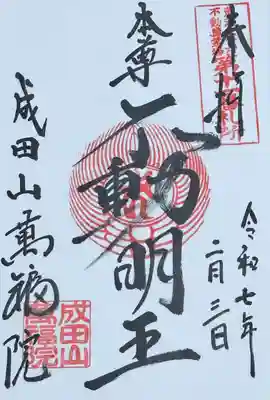 奉拝
本尊
不動明王
令和七年
二月三日
成田山萬福院
成田山
萬福院